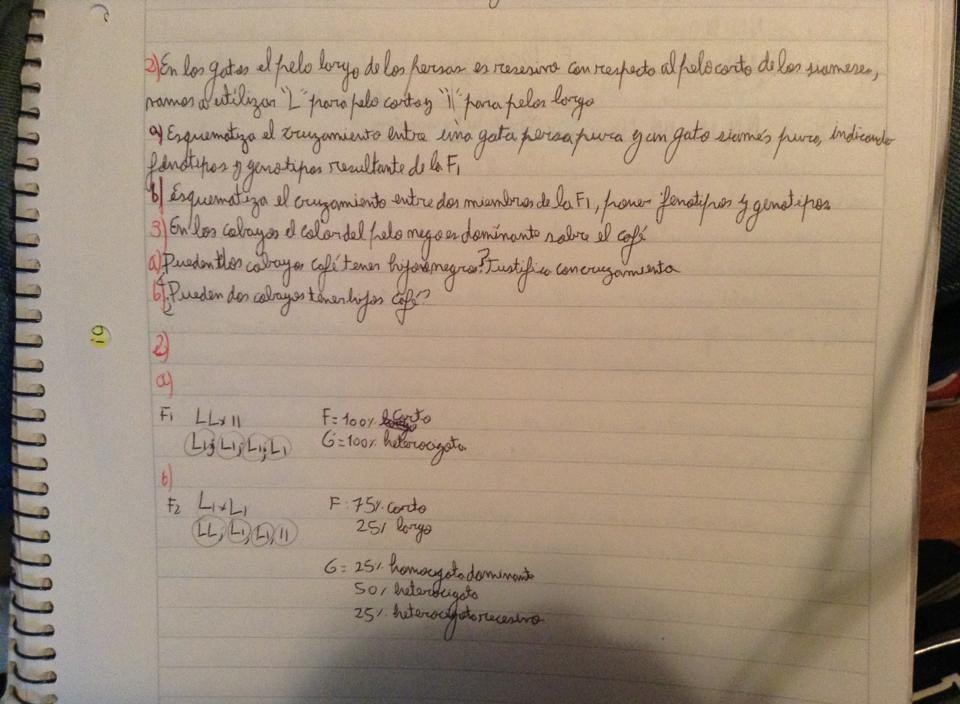 2) En los gatos el pelo largo de los persas es resesivo con respecto al pelo corto de los siameses,
vamos a utilizar "L" para pelo corto y "l" para pelos largo
a) Esquematiza el cruzamiento entre una gata persa pura y un gato siamés puro, indicando
fenotipos y genotipos resultante de la F1
b) Esquematiza el cruzamiento entre dos miembros de la F1, poner fenotipos y genotipos
3) En los cobayos el color del pelo negro es dominante sobre el café
a) ¿Pueden dos cobayos café tener hijos negros? Justifica con cruzamiento
b) ¿Pueden dos cobayos tener hijos café?
19
2)
a)
F1 LL x ll F= 100% corto
Ll; Ll; Ll; Ll G= 100% heterocigoto
b)
F2 Ll x Ll F: 75% corto
LL; Ll; Ll; ll 25% largo
G= 25% homocigoto dominante
50% heterocigoto
25% heterocigoto recesivo